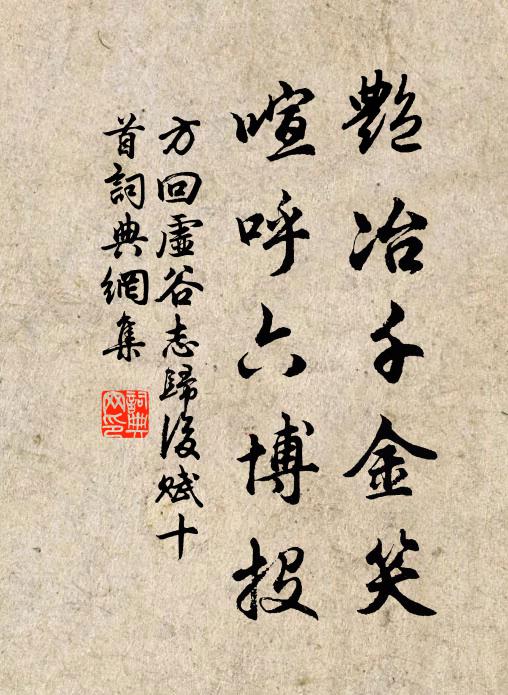 艷冶千金笑
喧呼六博投
方回虛谷志歸後賦十
首詞典網集
詞典
网印